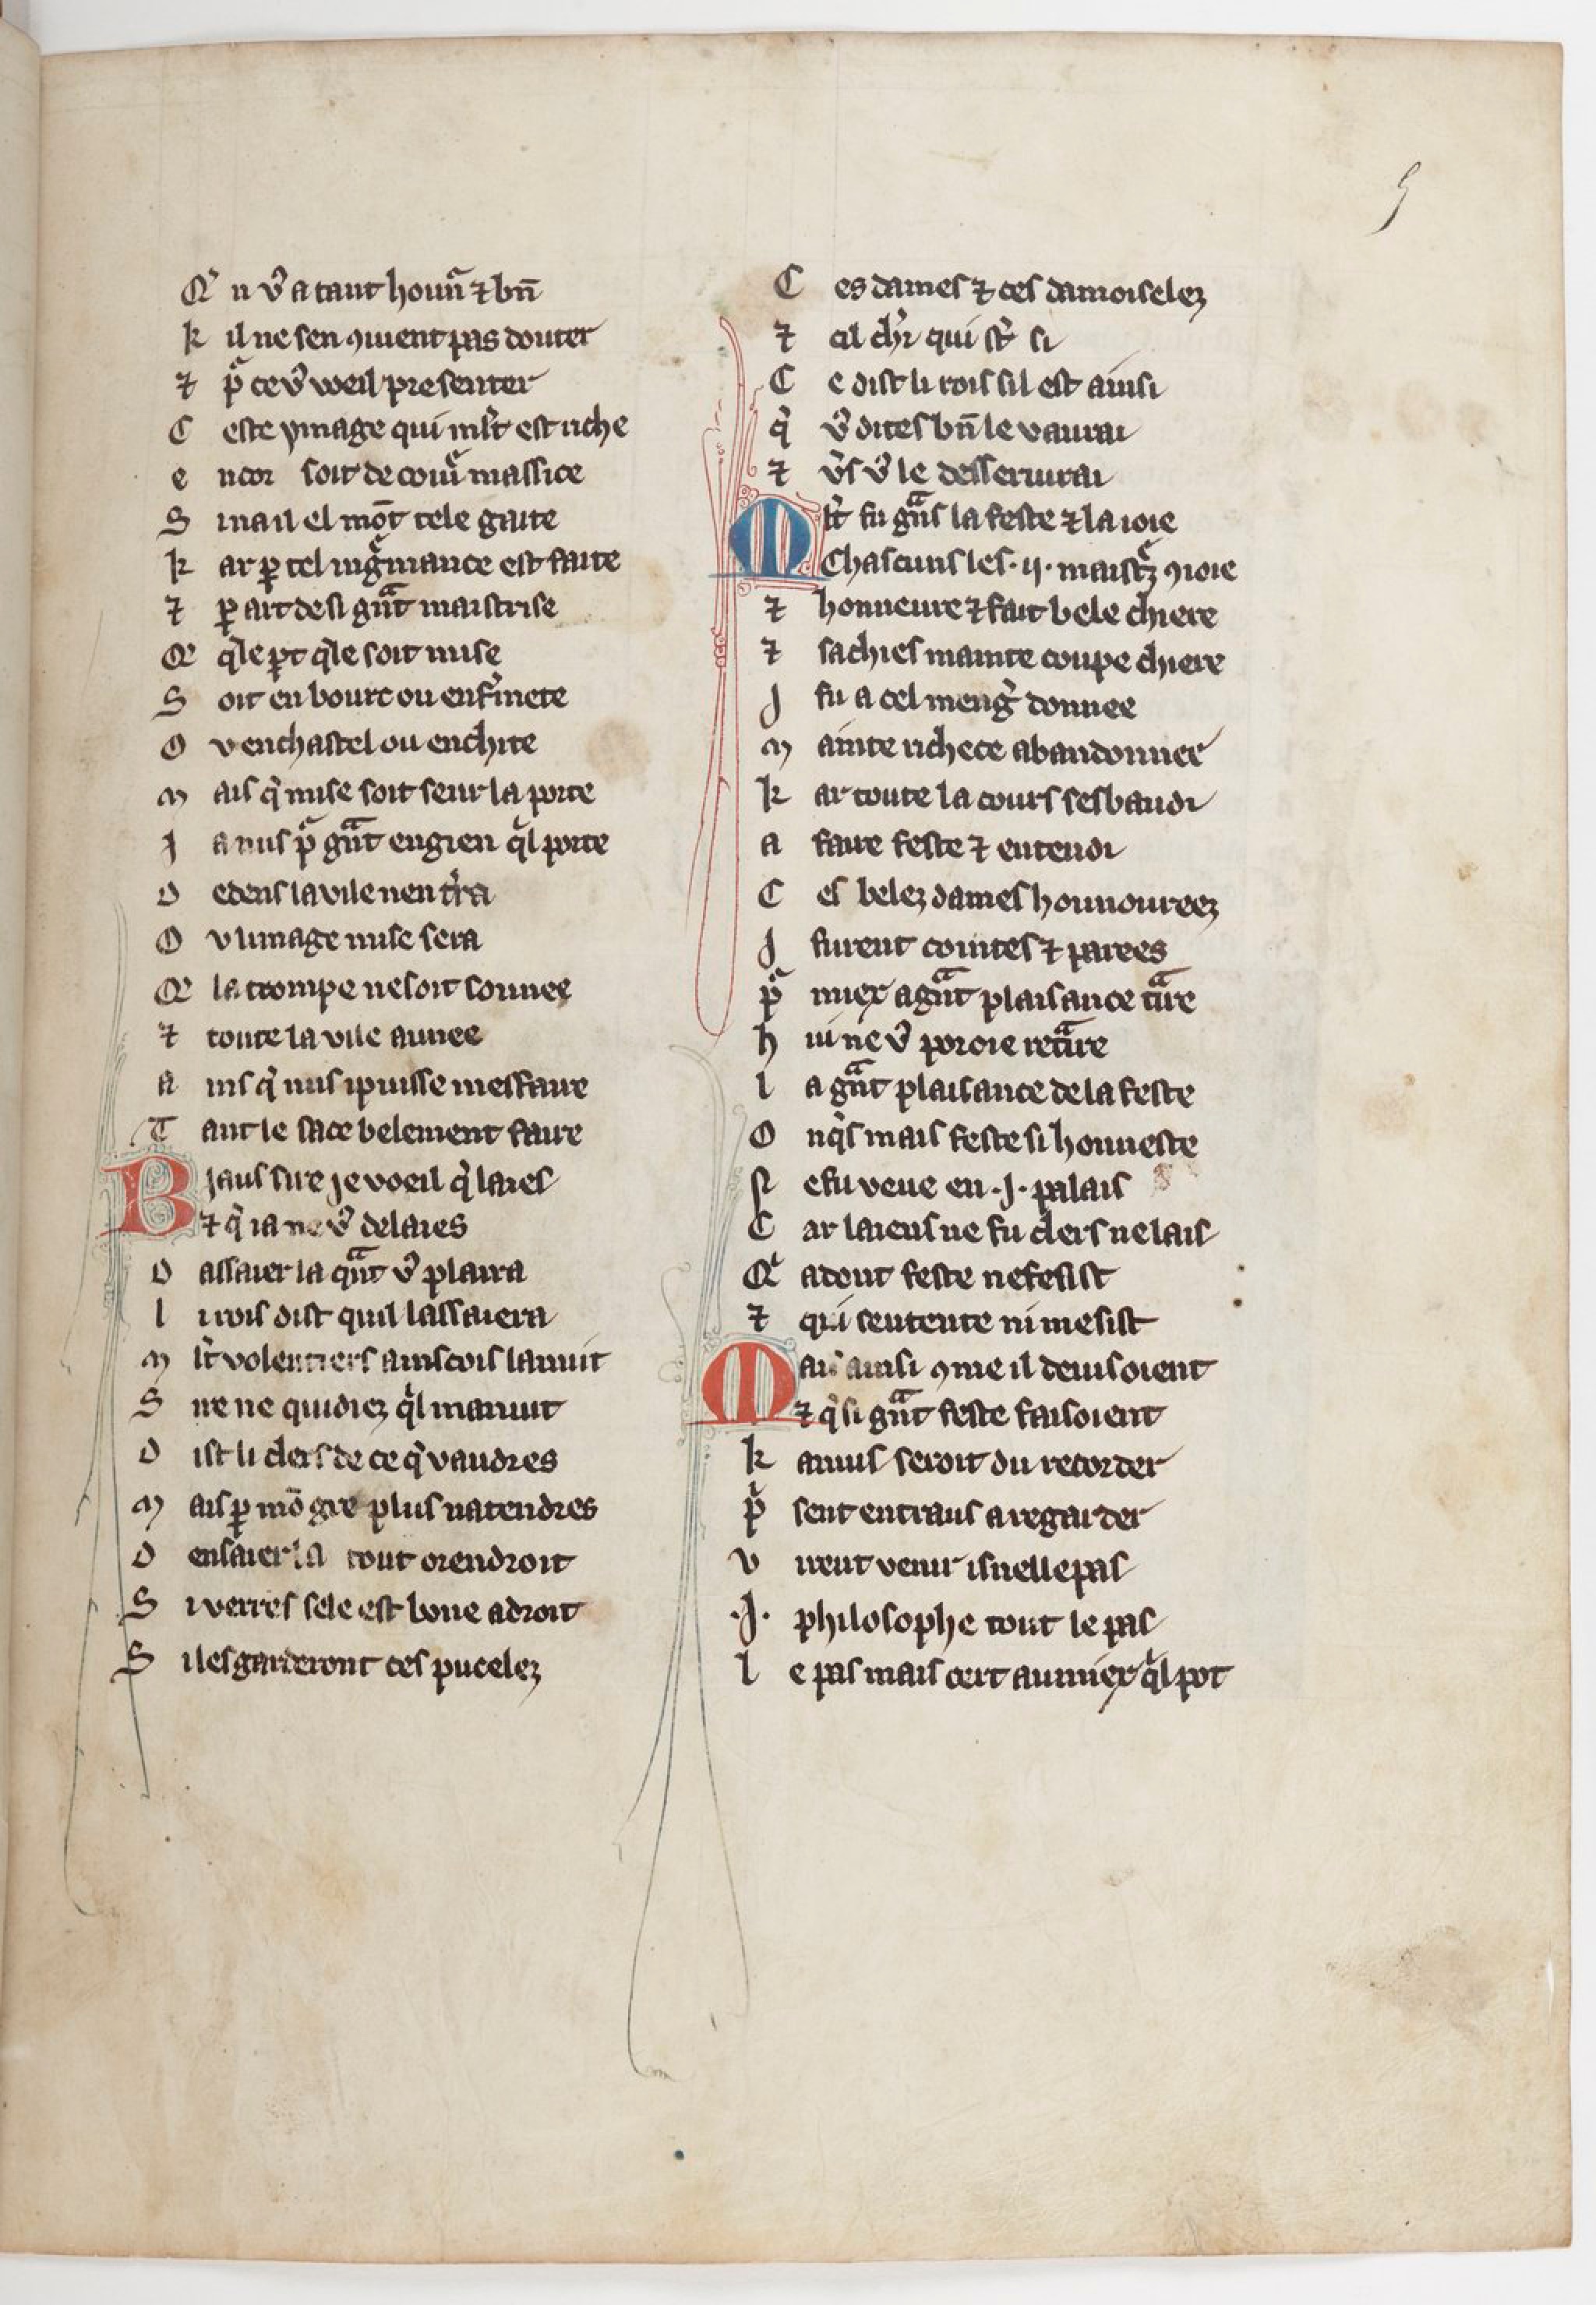 5
Qͥ n vͦ a tant hounᷓ ⁊ bn̄
k il ne sen ꝯuient pas douter
⁊ pᷓ ce vͦ weil presenter
C este ymage qui ml̾t est riche
e ncor soit de couiᷓ massice
S ina il el mōt tele gaite
k ar ꝑ tel nigᷓmance est faite
⁊ ꝑ art de si gᷓnt maistrise
Qͥ qͥle ꝑt qͥle soit mise
S oit en bourc ou en fͥmete
O v en chastel ou en chite
m ais qͥ mise soit seur la porte
J a nus pᷓ gᷓnt engien qͥl porte
D edens la vile nentͥra
O v limage mise sera
Qͥ la trompe ne soit sonnee
⁊ toute la vile aunee
A ins qͥ nus i puisse mesfaire
T ant le sace belement faire
B iaus sire je voeil qͥ laies
⁊ qͥ ia ne vͦ delaies
D assaier la qᷓnt vͦ plaira
l i rois dist quil lassaiera
m l̾t volentiers ainscois lanuit
S ire ne quidiez qͥl manuit
D ist li clers de ce qͥ vaudres
m ais ꝑ mō gre plus natendres
D ensaier la tout orendroit
S i verres sele est bone a droit
S i lesgarderont ces pucelez
C es dames ⁊ ces damoiselez
⁊ cil chr̾ qui st̾ si
C e dist li rois sil est ainsi
qͥ vͦ dites bn̄ le vaurai
⁊ v̾s vͦ le desseruirai
M l̾t fu gᷓns la feste ⁊ la ioie
Chascuns les .ij. maistᷓz ꝯioie
⁊ honneure ⁊ fait bele chiere
⁊ sachies mainte coupe chiere
J fu a cel meng̾ donnee
m ainte richece abandonnee
k ar toute la cours sesbaudi
a faire feste ⁊ entendi
C es belez dames honnoureez
J furent cointes ⁊ parees
pᷓ miex a gᷓnt plaisance tᷓire
h ui ne vͦ poroie retᷓire
l a gᷓnt plaisance de la feste
O nqͥs mais feste si honneste
N e fu veue en .J. palais
C ar laiens ne fu clers ne lais
Qͥ adont feste ne fesist
⁊ qui sentente ni mesist
M ais ainsi ꝯme il deuisoient
⁊ qͥ si gᷓnt feste faisoient
k anuis seroit du recorder
pͥ sent entraus a regarder
v irent venir isnelle pas
.J. philosophe tout le pas
l e pas mais cert au miex qͥl pot